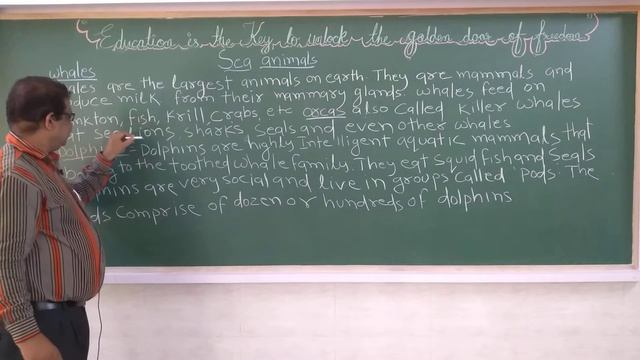 Education is the Key to unlock the golden door of freedom
Sea animals
whales
ales are the largest animals on earth. They are mammals and
duce milk from their mammary glands whales feed on
nkton, fish, Krill, Crabs, etc orcas also Called Killer whales
at sea lions, sharks Seals and even other whales
Dolphins - Dolphins are highly Intelligent aquatic mammals that
to the toothed whale family. They eat Squid fish and Seals
phins are very social and live in groups called 'Pods. The
ds Comprise of dozen or hundreds of dolphins